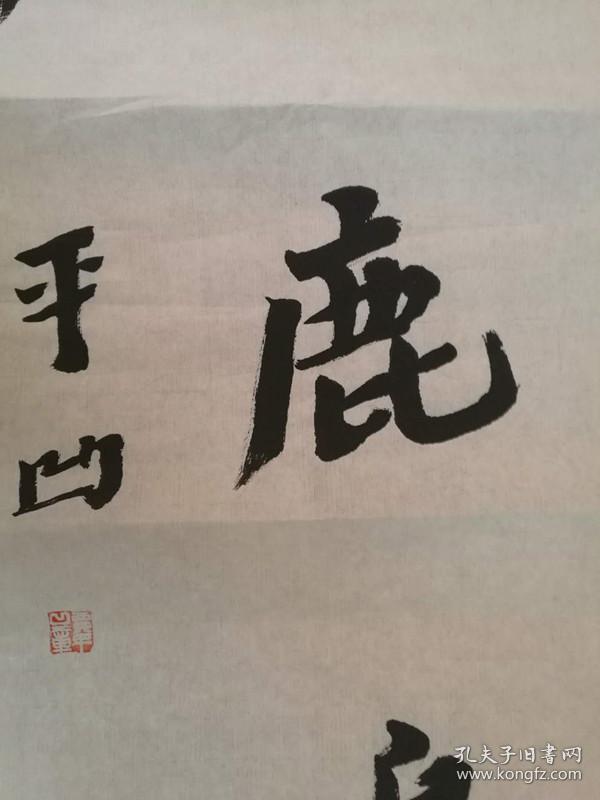 鹿
平凹
孔夫子旧书网
www.kongfz.com